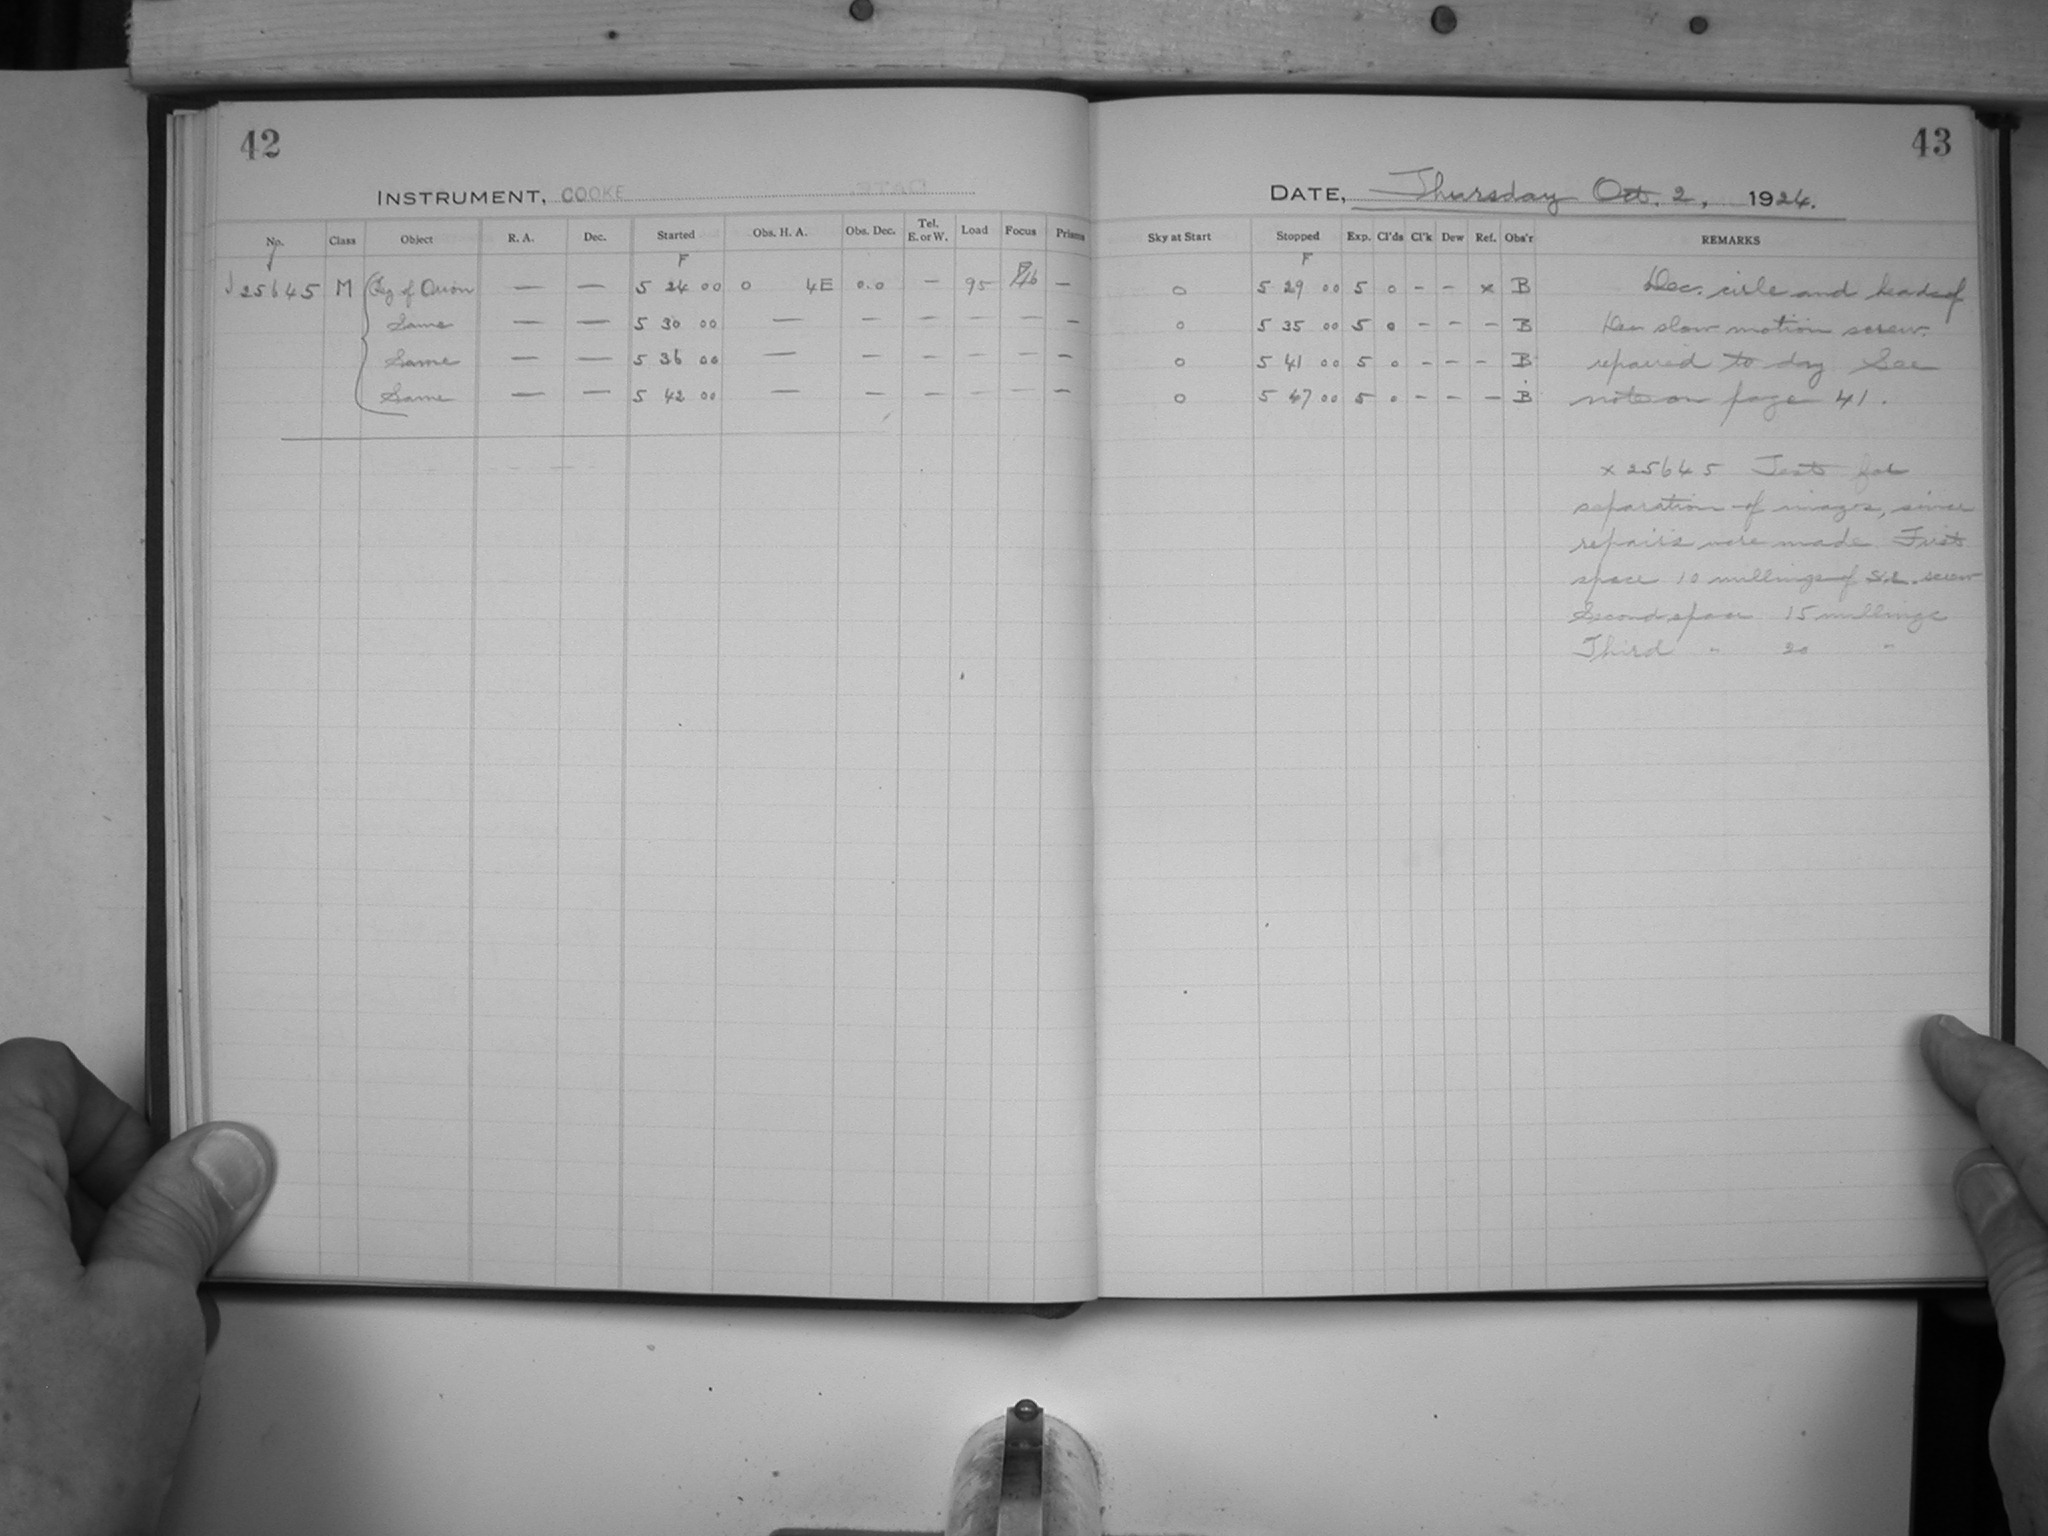 42
INSTRUMENT, COOKE
No. Class Object R. A. Dec. Started Obs. H. A. Obs. Dec. Tel. E. or W. Load Focus Prisms
F
25645 M Reg of Orion — — 5 24 00 0 4E 0.0 — 95 —
Same — — 5 30 00 — — — — — —
Same — — 5 36 00 — — — — — —
Same — — 5 42 00 — — — — — —
43
DATE, Thursday Oct. 2, 1924.
Sky at Start Stopped Exp. Cl'ds Cl'k Dew Ref. Obs'r REMARKS
F
0 5 29 00 5 0 - - x B Dec. circle and heads of
0 5 35 00 5 0 - - - B Dec slow motion screw.
0 5 41 00 5 0 - - - B repaired to day See
0 5 47 00 5 0 - - - B note on page 41.
x 25645 Test for
separation of images, since
repairs were made First
space 10 millings of screw
Second space 15 millings
Third " 20 "